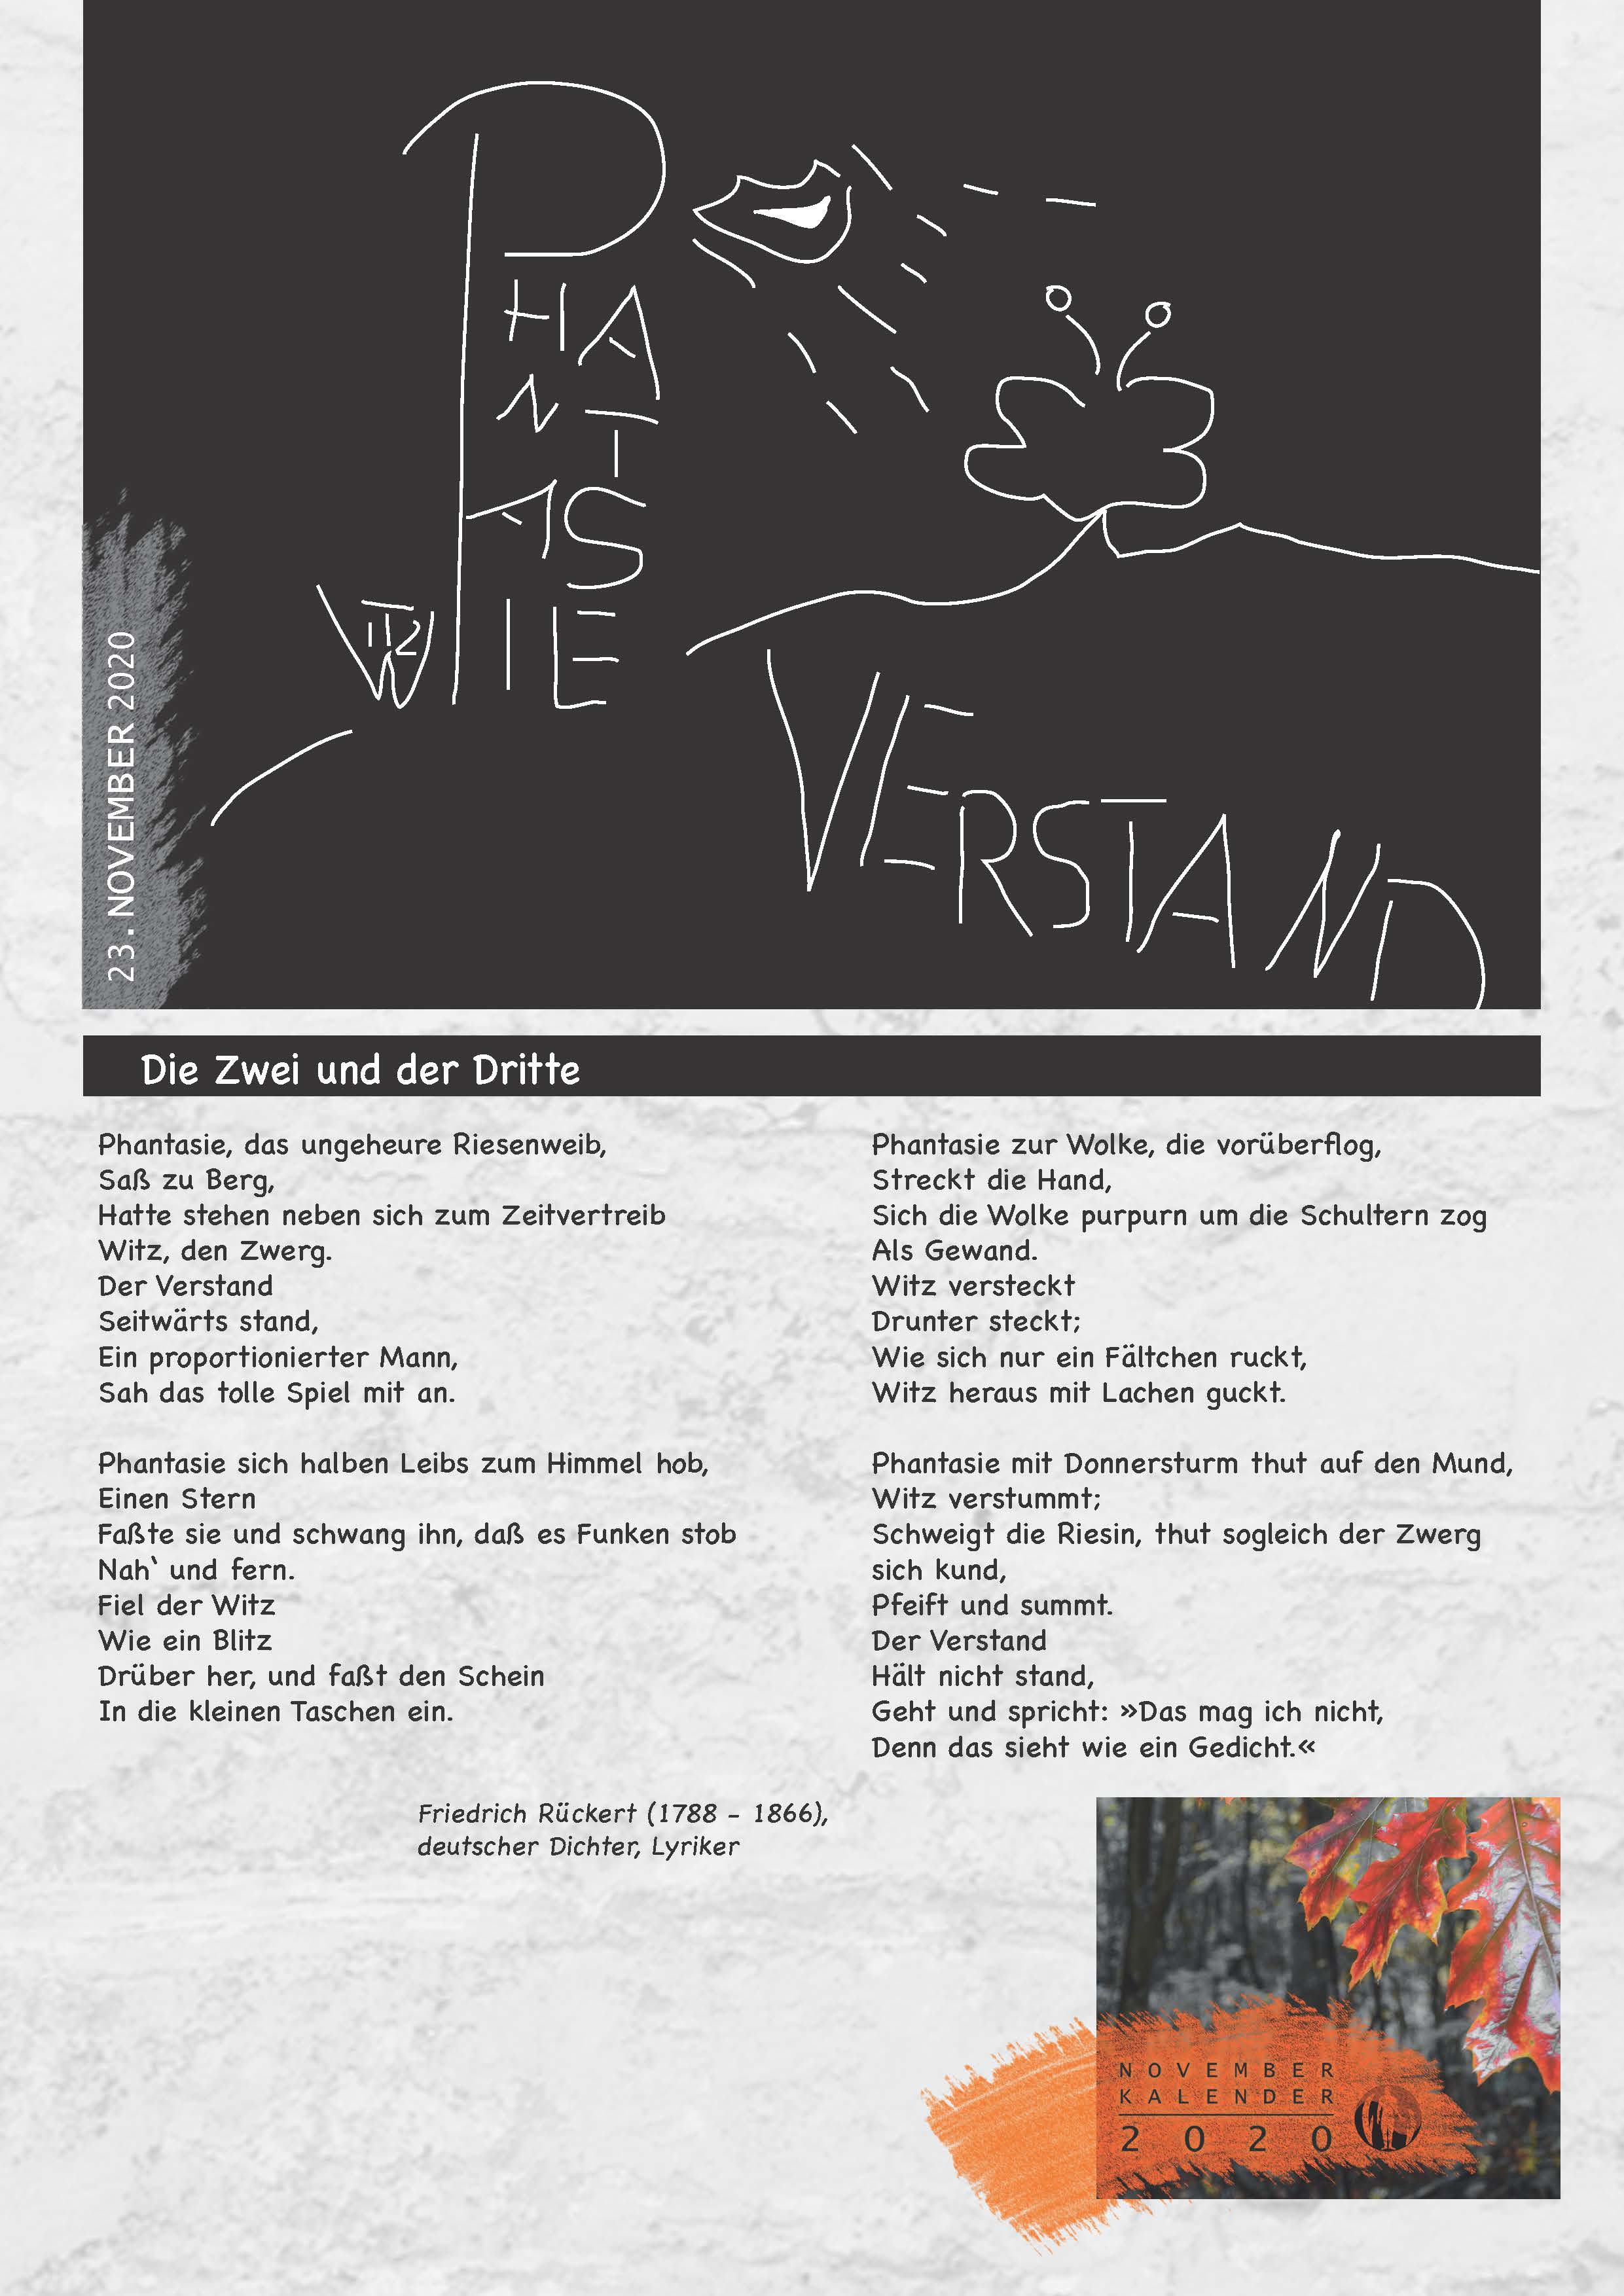 PHANTASIE
WITZ
VERSTAND
23. NOVEMBER 2020
Die Zwei und der Dritte
Phantasie, das ungeheure Riesenweib,
Saß zu Berg,
Hatte stehen neben sich zum Zeitvertreib
Witz, den Zwerg.
Der Verstand
Seitwärts stand,
Ein proportionierter Mann,
Sah das tolle Spiel mit an.
Phantasie sich halben Leibs zum Himmel hob,
Einen Stern
Faßte sie und schwang ihn, daß es Funken stob
Nah‘ und fern.
Fiel der Witz
Wie ein Blitz
Drüber her, und faßt den Schein
In die kleinen Taschen ein.
Phantasie zur Wolke, die vorüberflog,
Streckt die Hand,
Sich die Wolke purpurn um die Schultern zog
Als Gewand.
Witz versteckt
Drunter steckt;
Wie sich nur ein Fältchen ruckt,
Witz heraus mit Lachen guckt.
Phantasie mit Donnersturm thut auf den Mund,
Witz verstummt;
Schweigt die Riesin, thut sogleich der Zwerg
sich kund,
Pfeift und summt.
Der Verstand
Hält nicht stand,
Geht und spricht: »Das mag ich nicht,
Denn das sieht wie ein Gedicht.«
Friedrich Rückert (1788 – 1866),
deutscher Dichter, Lyriker
NOVEMBER
KALENDER
2020